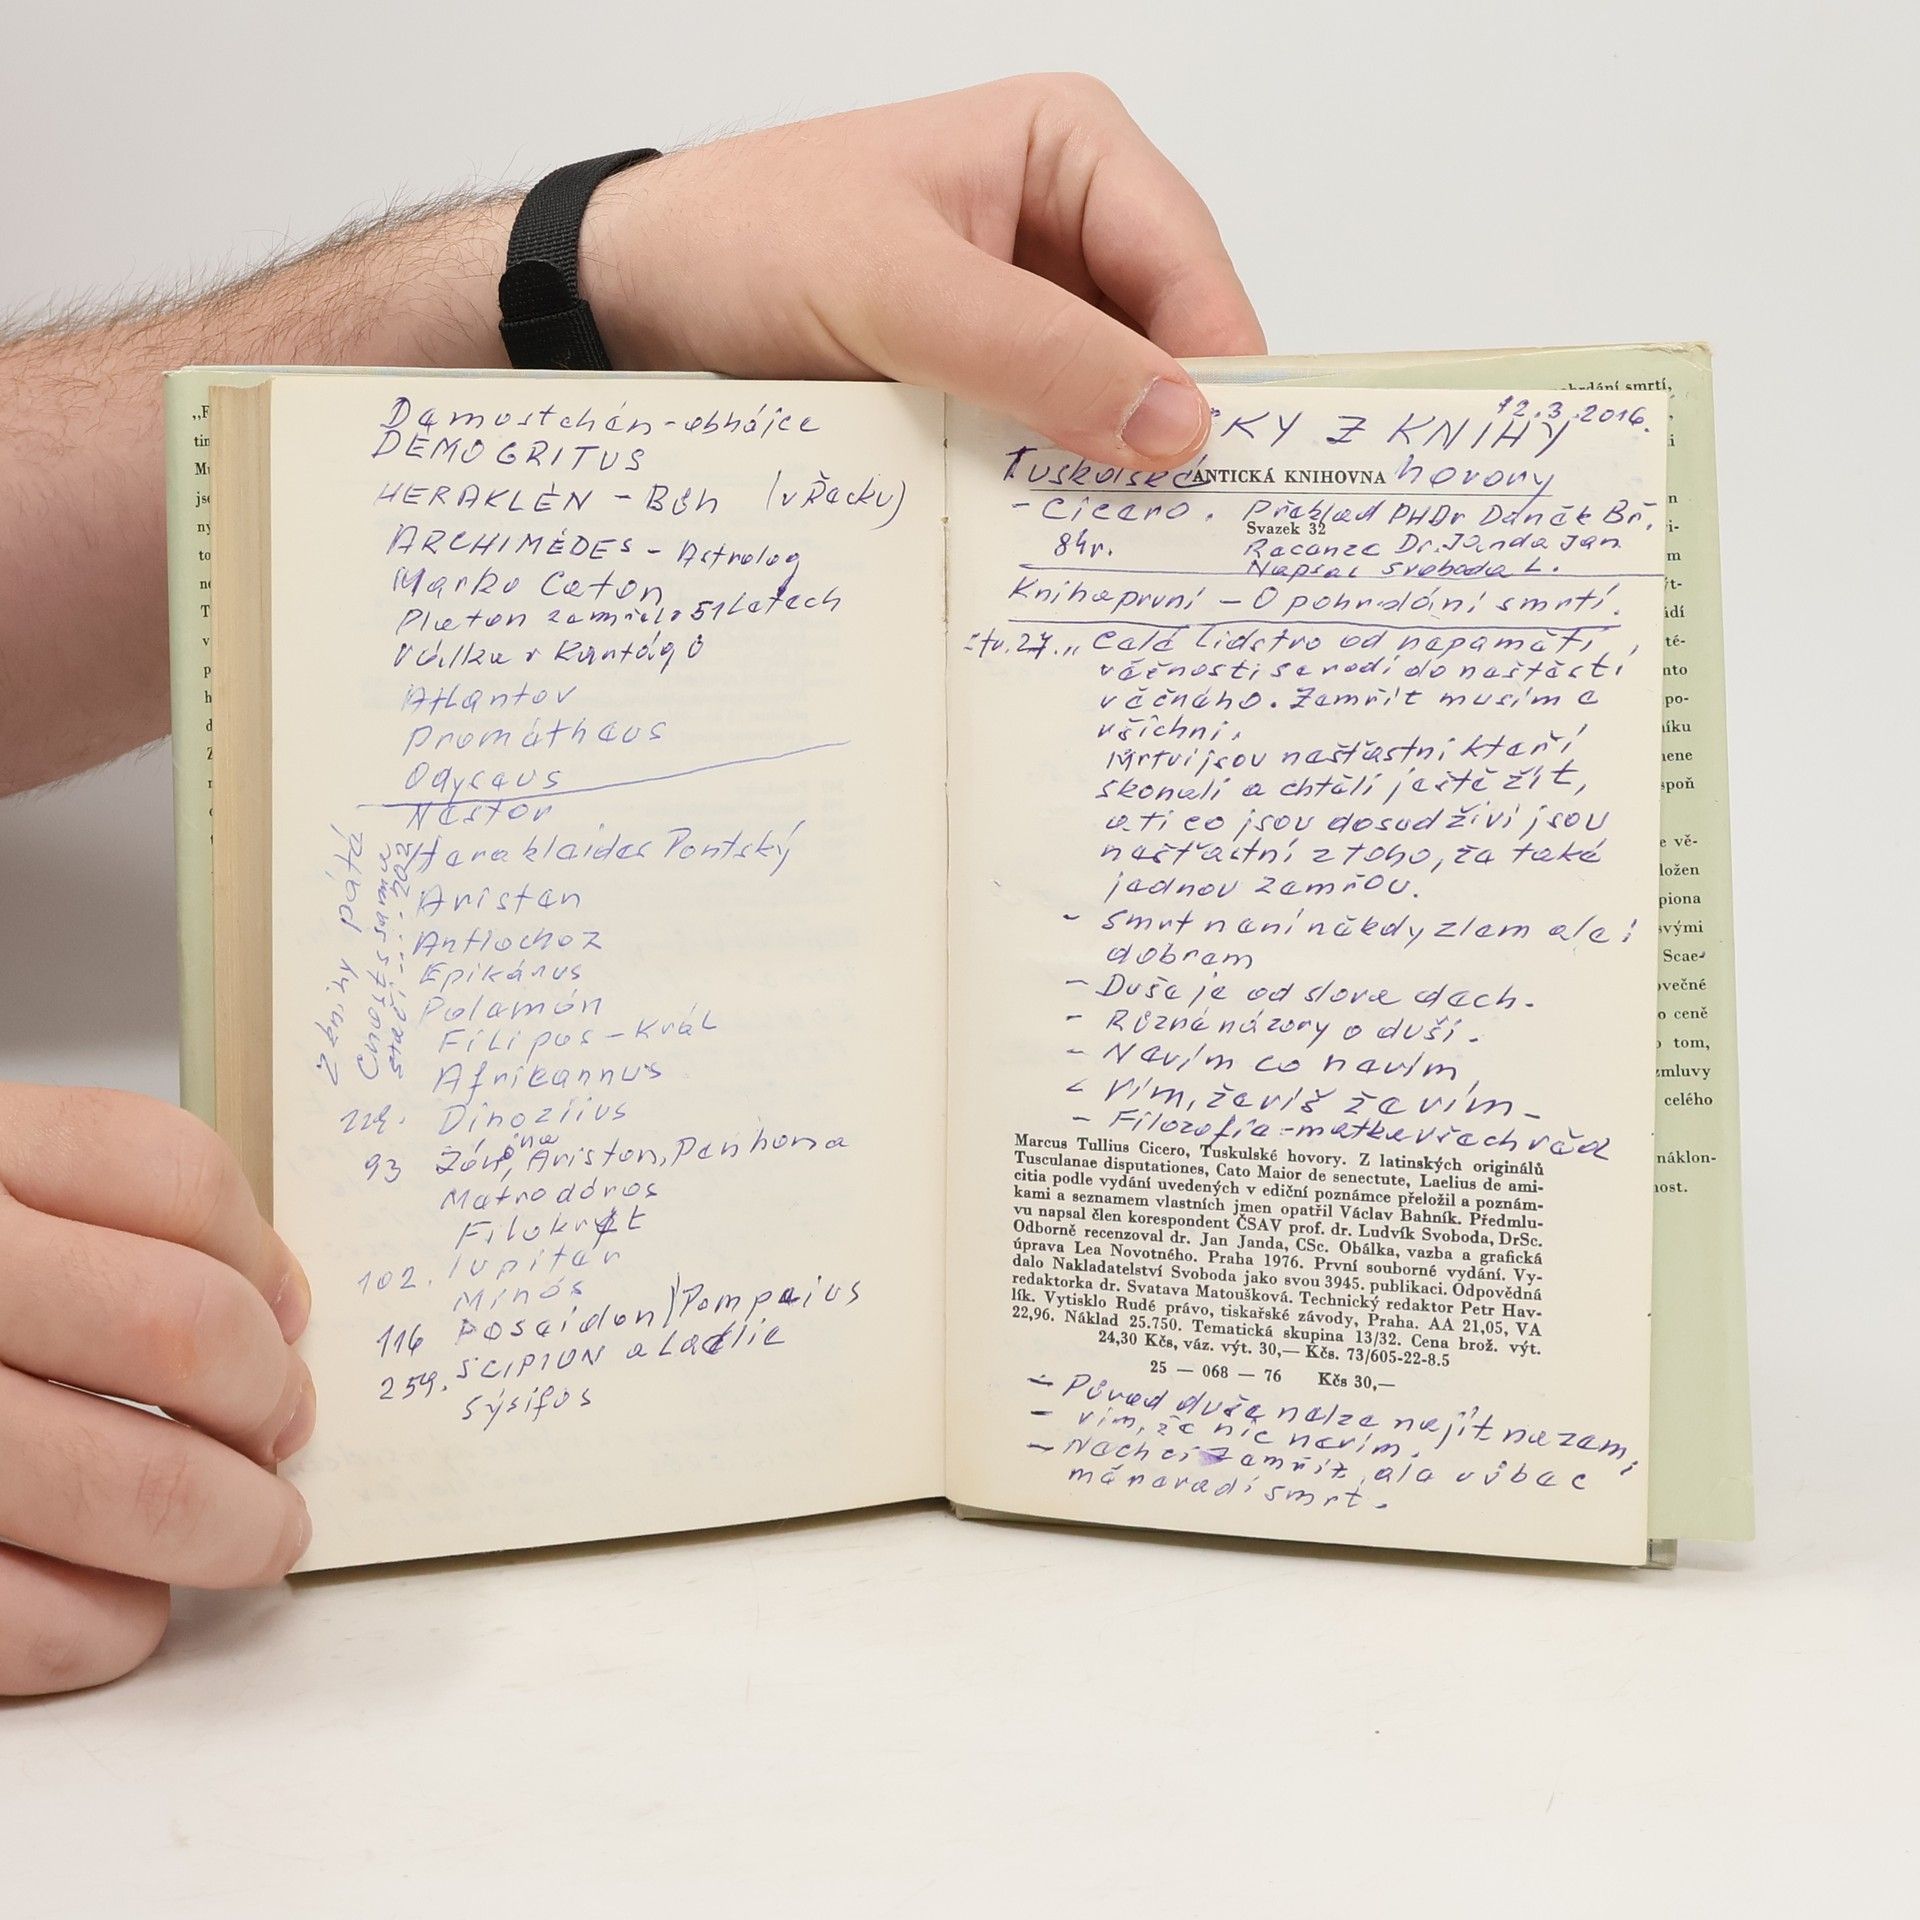 Damostchén - obhájce
DEMOGRITUS
HERAKLÉN - Bůh (v Řecku)
ARCHIMÉDES - Astrolog
Marko Caton
Platon zemřel v 51 letech
Válka v Kartágo
Atlantov
Promátheus
Odyseus
Nestor
Herakleides Pontský
Aristan
Antiochoz
Epikárus
Polamón
Filipos - Král
Afrikannus
Dinoziius
93 Zén, Ariston, Panhona
Matrodóros
Filokrat
102. Iupiter
Minós
116 Poseidon / Pompeius
259. SCIPION a Laelie
Sýsifos
z knihy pátá
Cnost s sama
stačí ... 202
KY Z KNIHY 12.3.2016.
Tuskulské ANTICKÁ KNIHOVNA hovory
- Cicero. Překlad PHDr Daněk Bř.
Svazek 32
84r. Recenze Dr. Janda Jan
Napsal Svoboda L.
Kniha první - O pohrdání smrtí.
str. 27. „Celé lidstvo od nepaměti,
věčnosti se rodí do neštěstí
věčného. Zemřít musíme
všichni.
Mrtví jsou nešťastni kteří
skonali a chtěli ještě žít,
a ti co jsou dosud živi jsou
nešťastní z toho, že také
jednou zemřou.
- Smrt není někdy zlem ale i
dobrem
- Duše je od slova dech.
- Různé názory o duši.
- Nevím co nevím
- Vím, že víš že vím -
- Filozofie - matka všech věd
Marcus Tullius Cicero, Tuskulské hovory. Z latinských originálů
Tusculanae disputationes, Cato Maior de senectute, Laelius de ami-
citia podle vydání uvedených v ediční poznámce přeložil a poznám-
kami a seznamem vlastních jmen opatřil Václav Bahník. Předmlu-
vu napsal člen korespondent ČSAV prof. dr. Ludvík Svoboda, DrSc.
Odborně recenzoval dr. Jan Janda, CSc. Obálka, vazba a grafická
úprava Lea Novotného. Praha 1976. První souborné vydání. Vy-
dalo Nakladatelství Svoboda jako svou 3945. publikaci. Odpovědná
redaktorka dr. Svatava Matoušková. Technický redaktor Petr Hav-
lík. Vytisklo Rudé právo, tiskařské závody, Praha. AA 21,05, VA
22,96. Náklad 25.750. Tematická skupina 13/32. Cena brož. výt.
24,30 Kčs, váz. výt. 30,— Kčs. 73/605-22-8.5
25 — 068 — 76 Kčs 30,—
- Původ duše nelze najít na zemi
- vím, že nic nevím.
- Nechci zemřít, ale vůbec
mě nevadí smrt.